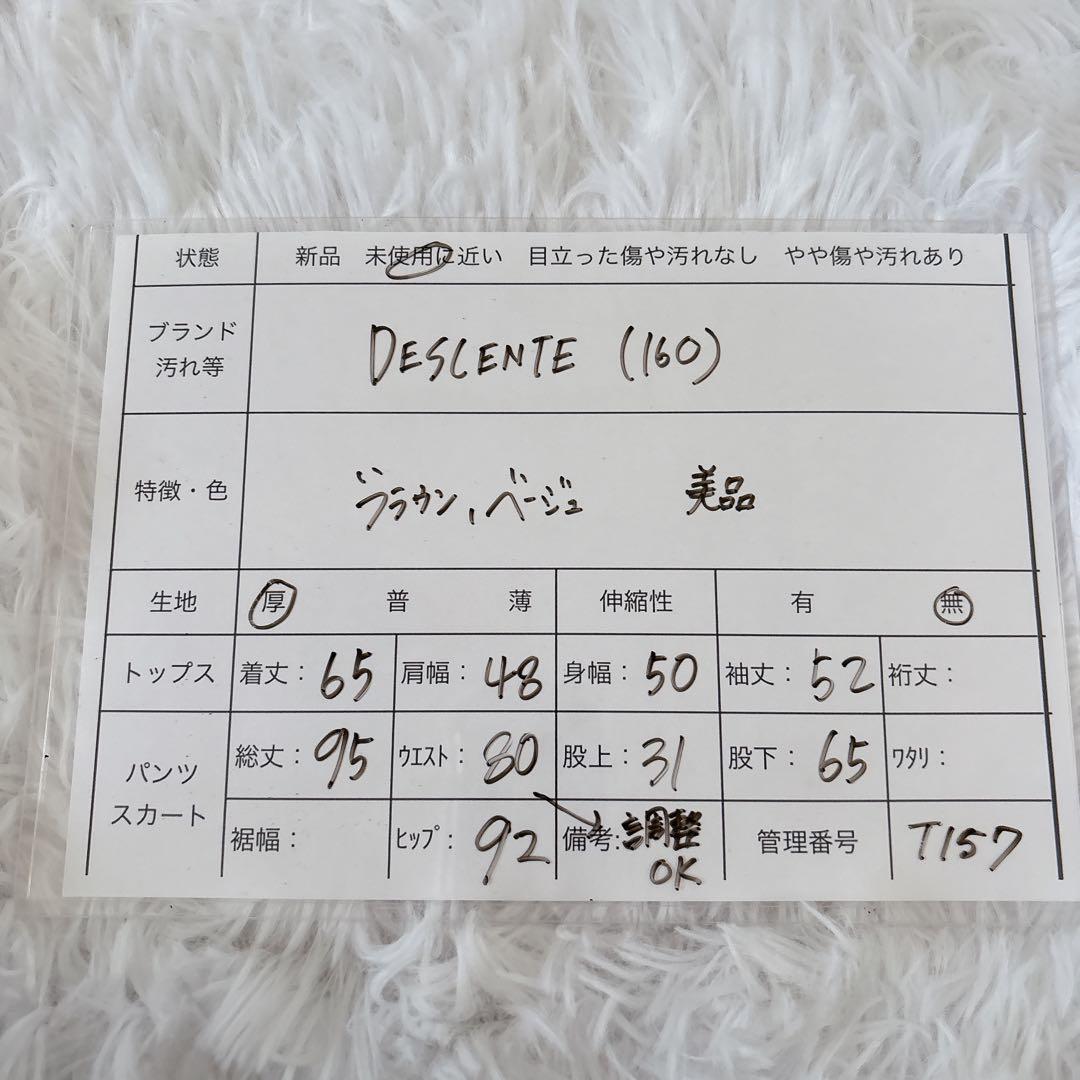 状態 新品 未使用に近い 目立った傷や汚れなし やや傷や汚れあり
ブランド
汚れ等
DESCENTE (160)
特徴・色 ブラウン, ベージュ 美品
生地 厚 普 薄 伸縮性 有 無
トップス 着丈: 65 肩幅: 48 身幅: 50 袖丈: 52 裄丈:
パンツ
スカート
総丈: 95 ウエスト: 80 股上: 31 股下: 65 ワタリ:
裾幅: ヒップ: 92 備考: 調整 OK 管理番号 T157